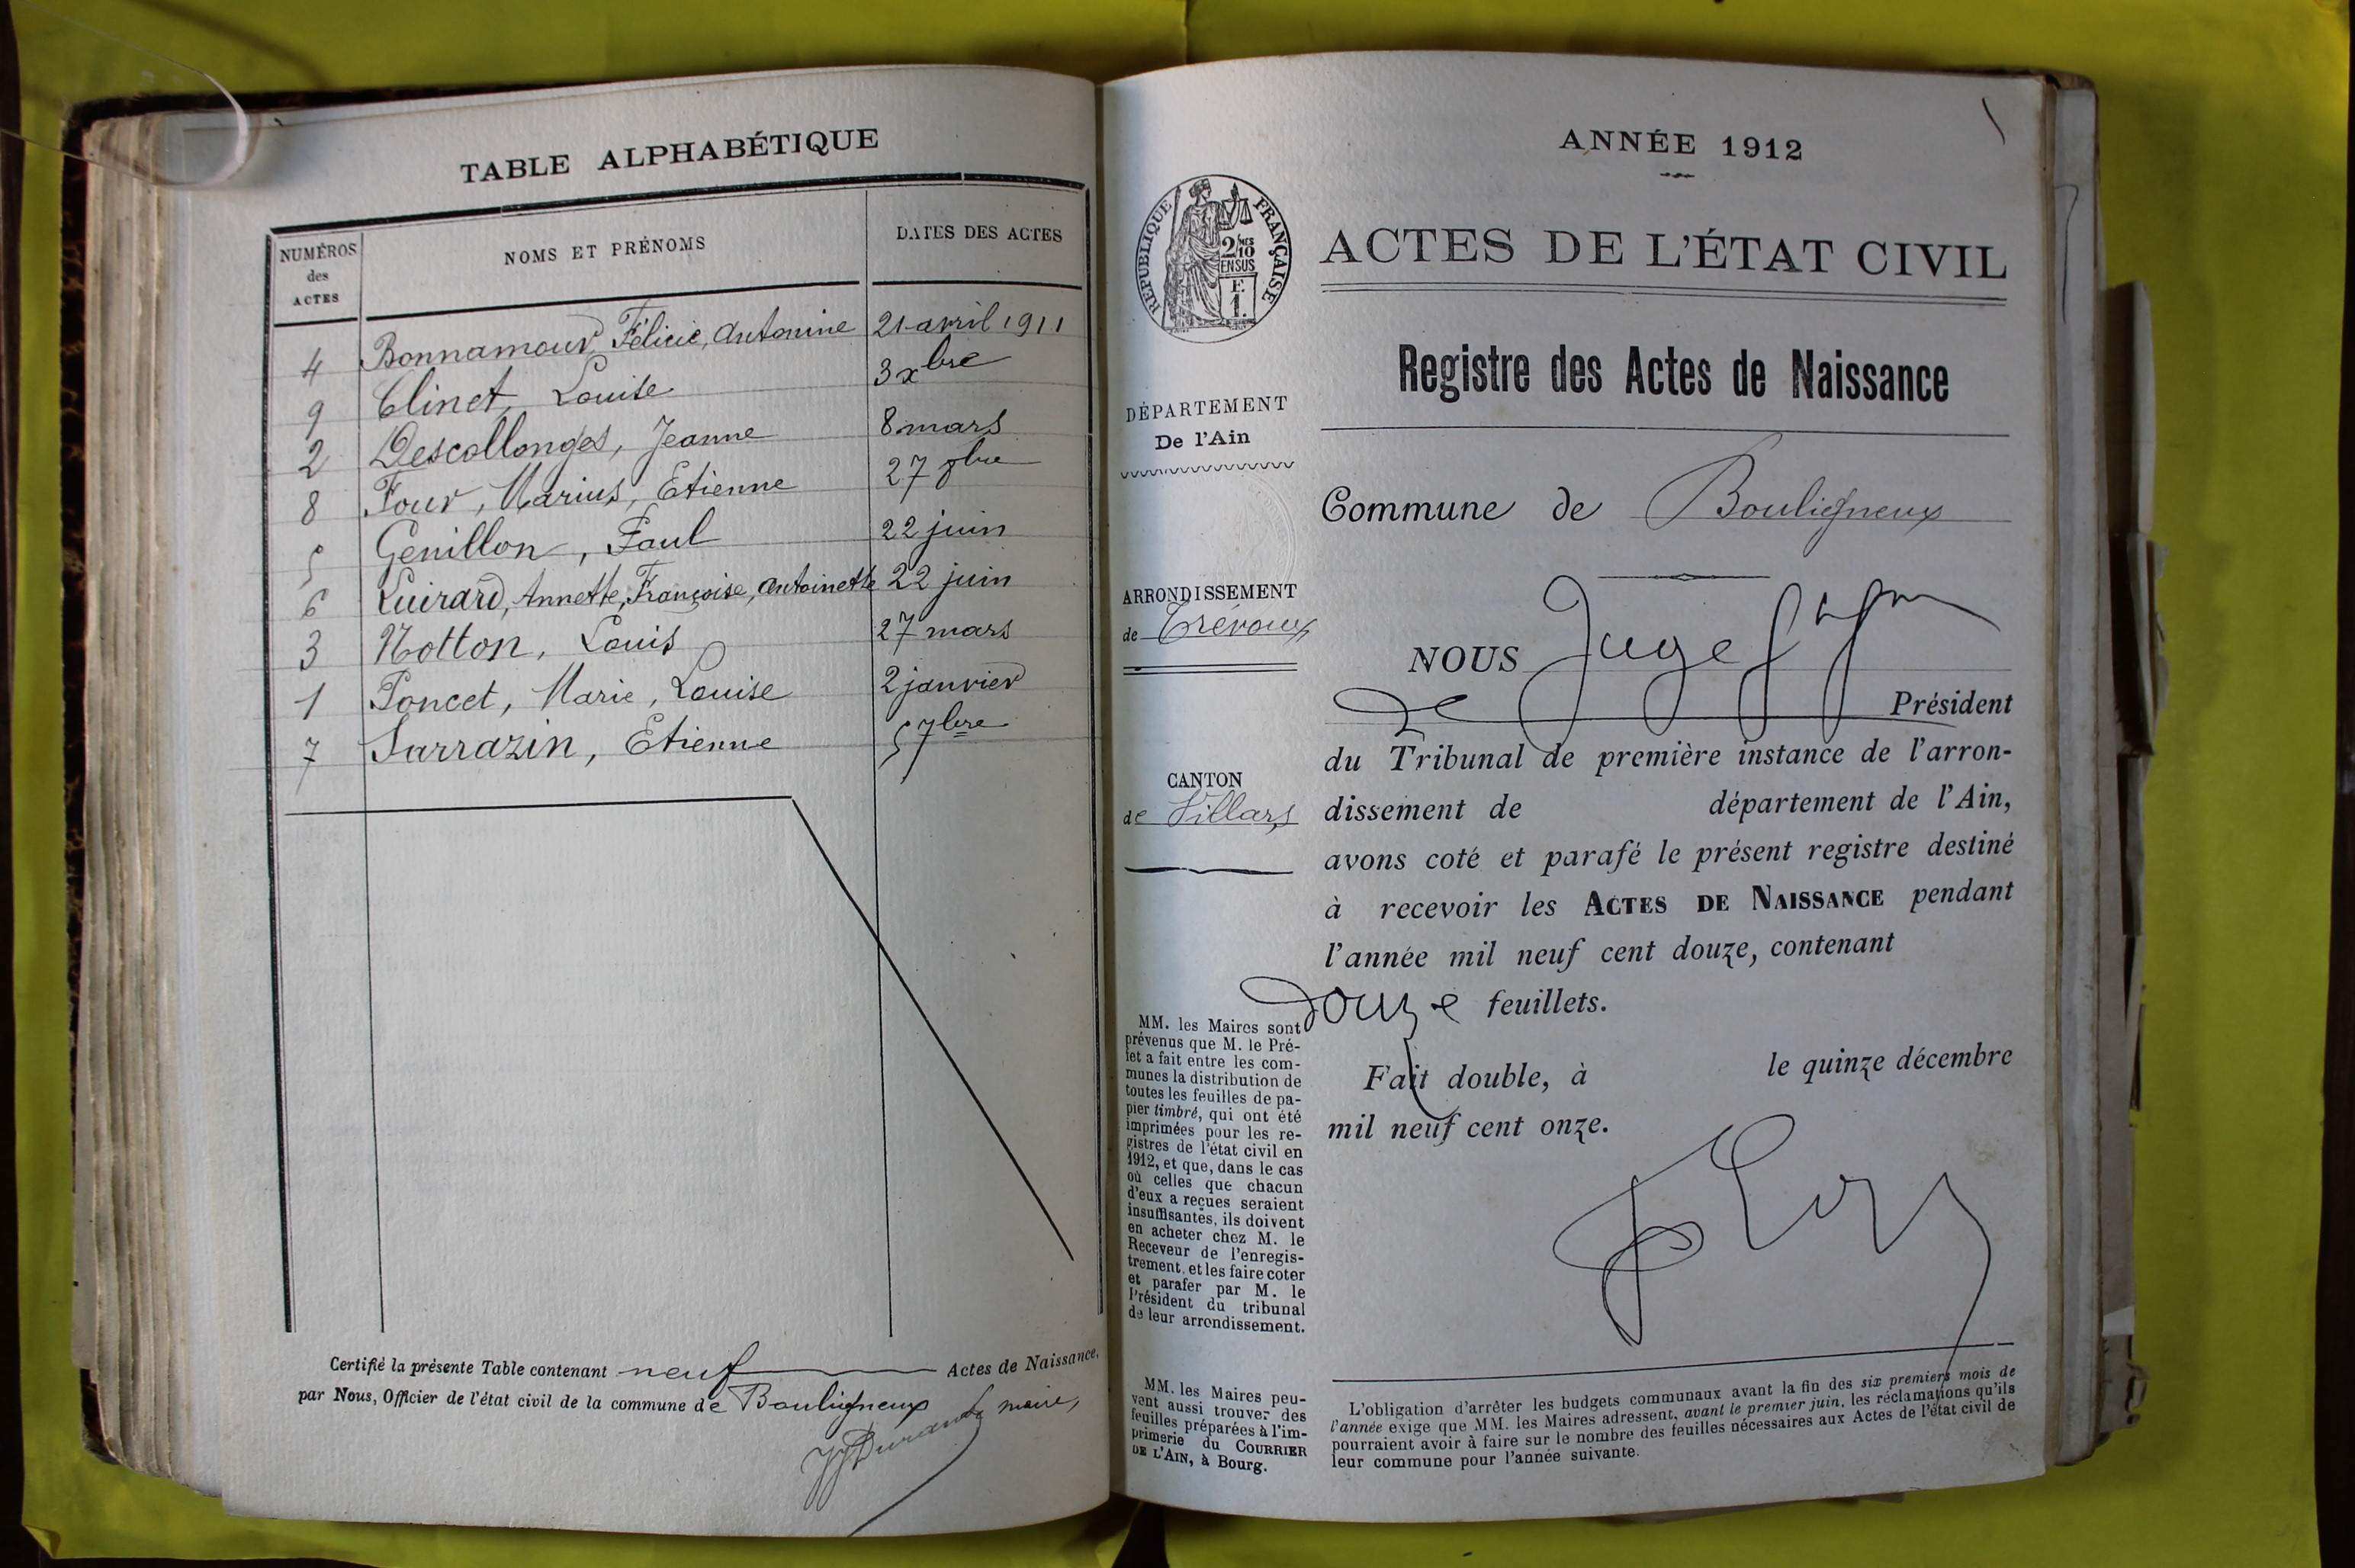 TABLE ALPHABÉTIQUE
NUMÉROS
des
ACTES
NOMS ET PRÉNOMS
DATES DES ACTES
4 Bonnamour, Félicie, Antonine 21 avril 1911
9 Clinet, Louise 3 xbre
2 Descollonges, Jeanne 8 mars
8 Four, Marius, Etienne 27
5 Genillon, Paul 22 juin
6 Luirard, Annette, Françoise, Antoinette 22 juin
3 Notton, Louis 27 mars
1 Poncet, Marie, Louise 2 janvier
7 Sarrazin, Etienne 5 7bre
Certifié la présente Table contenant neuf Actes de Naissance,
par Nous, Officier de l'état civil de la commune de Bouligneux
Durand maire,
ANNÉE 1912
RÉPUBLIQUE FRANÇAISE
2/10MES
EN SUS
F.
1.
ACTES DE L'ÉTAT CIVIL
Registre des Actes de Naissance
DÉPARTEMENT
De l'Ain
Commune de Bouligneux
ARRONDISSEMENT
de Trévoux
CANTON
de Villars
NOUS Juge
Président
du Tribunal de première instance de l'arron-
dissement de département de l'Ain,
avons coté et parafé le présent registre destiné
à recevoir les ACTES DE NAISSANCE pendant
l'année mil neuf cent douze, contenant
douze feuillets.
Fait double, à le quinze décembre
mil neuf cent onze.
MM. les Maires sont
prévenus que M. le Pré-
fet a fait entre les com-
munes la distribution de
toutes les feuilles de pa-
pier timbré, qui ont été
imprimées pour les re-
gistres de l'état civil en
1912, et que, dans le cas
où celles que chacun
d'eux a reçues seraient
insuffisantes, ils doivent
en acheter chez M. le
Receveur de l'enregis-
trement, et les faire coter
et parafer par M. le
Président du tribunal
de leur arrondissement.
MM. les Maires peu-
vent aussi trouver des
feuilles préparées à l'im-
primerie du COURRIER
DE L'AIN, à Bourg.
L'obligation d'arrêter les budgets communaux avant la fin des six premiers mois de
l'année exige que MM. les Maires adressent, avant le premier juin, les réclamations qu'ils
pourraient avoir à faire sur le nombre des feuilles nécessaires aux Actes de l'état civil de
leur commune pour l'année suivante.